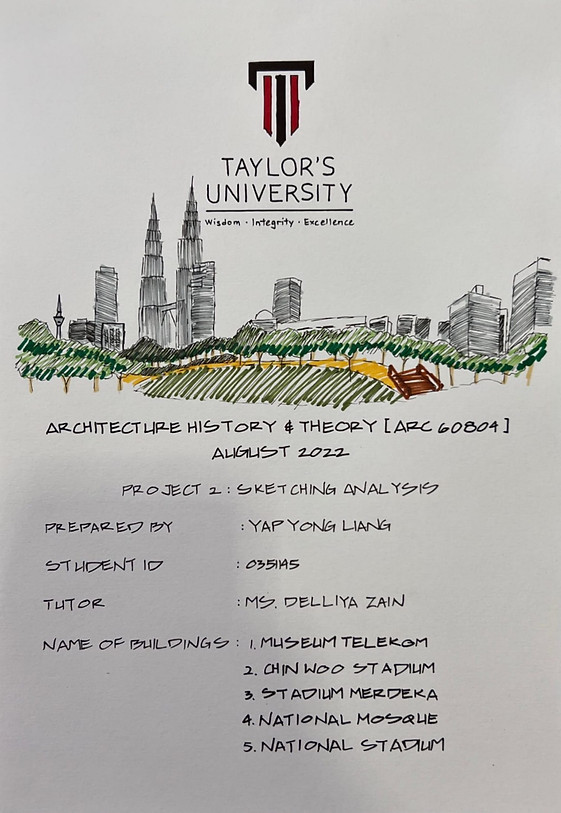 TAYLOR'S
UNIVERSITY
Wisdom · Integrity · Excellence
ARCHITECTURE HISTORY & THEORY [ARC 60804]
AUGUST 2022
PROJECT 2 : SKETCHING ANALYSIS
PREPARED BY : YAP YONG LIANG
STUDENT ID : 035145
TUTOR : MS. DELLIYA ZAIN
NAME OF BUILDINGS : 1. MUSEUM TELEKOM
2. CHIN WOO STADIUM
3. STADIUM MERDEKA
4. NATIONAL MOSQUE
5. NATIONAL STADIUM